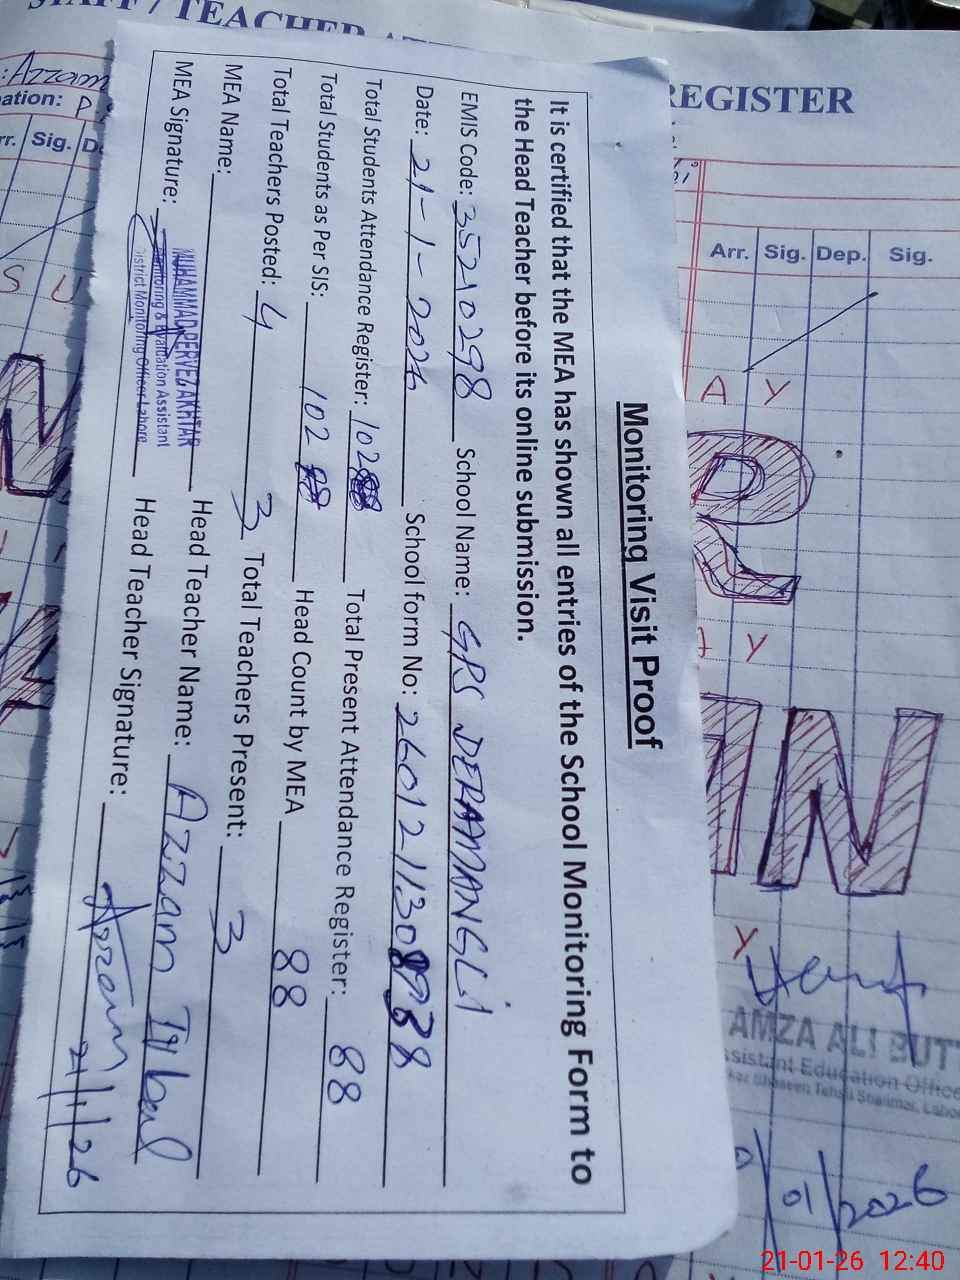 STAFF / TEACHER
REGISTER
: Azzam
ation: P
rr. Sig. D
Arr. Sig. Dep. Sig.
S U
A Y
R
Y
N
Y
Monitoring Visit Proof
It is certified that the MEA has shown all entries of the School Monitoring Form to
the Head Teacher before its online submission.
EMIS Code: 35210298 School Name: GPS DERAMANGLI
Date: 21-1-2026 School form No:
Total Students Attendance Register: 102 Total Present Attendance Register: 88
Total Students as Per SIS: 102 Head Count by MEA 88
Total Teachers Posted: 4 3 Total Teachers Present: 3
MEA Name: Head Teacher Name: Azzam Iqbal
MUHAMMAD PERVEZ AKHTAR
Monitoring & Evaluation Assistant
District Monitoring Officer Lahore
MEA Signature: Head Teacher Signature: Azzam
21/1/26
AMZA ALI BUT
ssistant Education Office
Tehsil Shalimar, Lahor
/01/2026
21-01-26 12:40